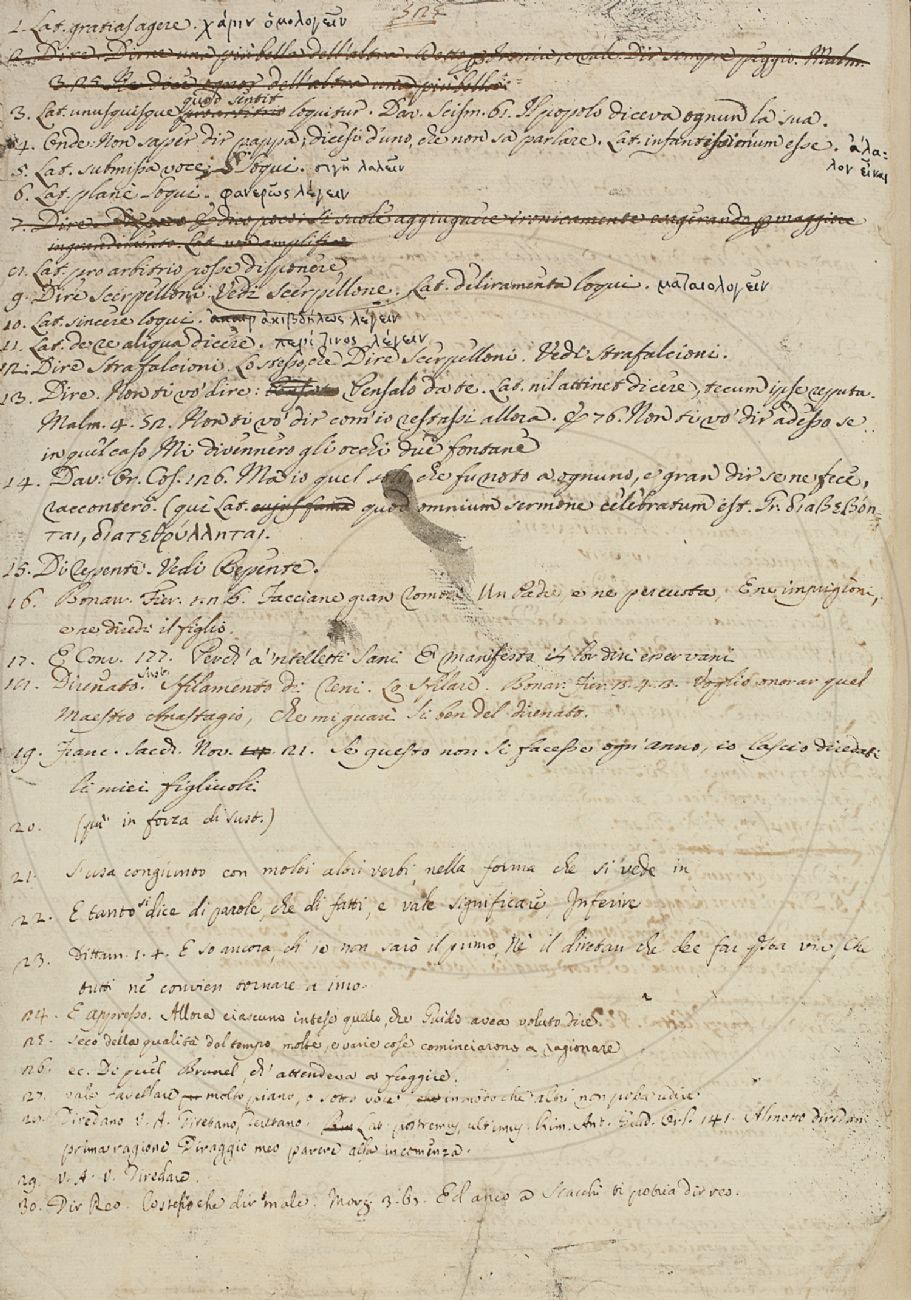 1. Lat. gratias agere. χάριν ὁμολογεῖν
2. Dire. Dirne una più bella dell'altra. Detto ironico, e vale Dir sempre peggio. Malm.
3. Lat. unusquisque quod sentit loquitur. Dav. Scism. 61. Il popolo diceva ognun la sua.
4. Onde: Non saper dir pappa, dicesi d'uno, che non sa parlare. Lat. infantissimum esse. ἄλα-
λον εἶναι
5. Lat. submissa voce loqui. σιγῇ λαλεῖν
6. Lat. planè loqui. φανερῶς λέγειν
7. Dire
ingrandimento. Lat.
8. Lat. pro arbitrio posse disponere
9. Dire Scerpelloni. Vedi Scerpellone. Lat. deliramenta loqui. ματαιολογεῖν
10. Lat. sincere loqui. ἀκιβδήλως λέγειν
11. Lat. de re aliqua dicere. περί τινος λέγειν
12. Dire Strafalcioni. Lo stesso, che Dire Scerpelloni. Vedi Strafalcioni.
13. Dire. Non ti vo' dire: Pensalo da te. Lat. nil attinet dicere, tecum ipse reputa.
Malm. 4. 52. Non ti vo' dir com'io restassi allora. E 76. Non ti vo' dir adesso se
in quel caso Mi divennero gli occhi due fontane
14. Dav. Or. Cos. 126. Ma io quel solo che fu noto a ognuno, e gran dir se ne fece,
racconterò. (qui Lat. quod omnium sermone celebratum est. Gr. διαβεβόη-
ται, διατεθρύλληται.
15. Di repente. Vedi Repente.
16. Bonar. Fier. Facciane gran romore Un Padre e ne percuota, E ne imprigioni,
e ne diredi il figlio.
17. E Conv. 177. Perch' a'ntelletti sani È manifesto i lor diri esser vani
18. Direnato. Sust. Sfilamento di reni. Lo sfilare. Bonar. Fier. Voglio onorar quel
Maestro Anastagio, che mi guarì sì ben del direnato.
19. Franc. Sacch. Nov. 21. Se questo non si facesse ogn'anno, io lascio diredati
li miei figliuoli
20. (qui in forza di sust.)
21. S'usa congiunto con molti altri verbi, nella forma che si vede in
22. E tanto si dice di parole, che di fatti, e vale significare, Inferire
23. Dittam. 1. 4. E so ancora, ch' io non sarò il primo, Nè il diretan che dee far questa via, Che
tutti ne convien tornare a imo.
24. E appresso. Allora ciascuno intese quello, che Guido avea voluto dire.
25. Seco della qualità del tempo, molte, e varie cose cominciarono a ragionare
26. ec. Di quel Brunel, ch' attendeva a fuggire.
27. vale favellare molto piano, o sotto voce in modo che altri non possa udire
28. Diredano V. A. Diretano, deretano. Lat. postremus, ultimus. Rim. Ant. Guid. Orl. 141. Al motto diredan
prima ragione Diraggio meo parere alla incomenza.
29. V. A. v. Diredare.
30. Dir Reo. Lo stesso che dir male. Morg. 3. 61. Ed anco a Scacchi ti potria dir reo.